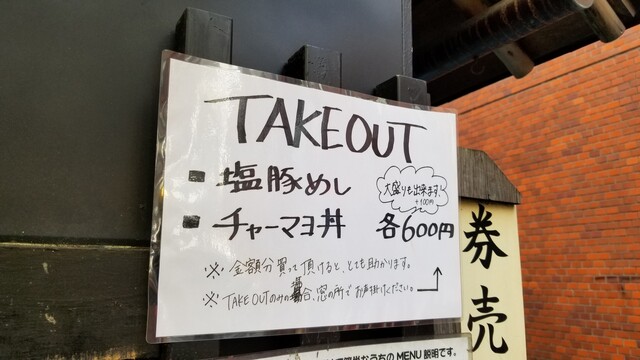 TAKEOUT
▪ 塩豚めし
大盛りも出来ます!
+100円
▪ チャーマヨ丼 各600円
※ 金額分買って頂けると、とても助かります。
※ TAKEOUTのみの場合、窓の所でお声掛けください。
券売
なうちの MENU 説明です。